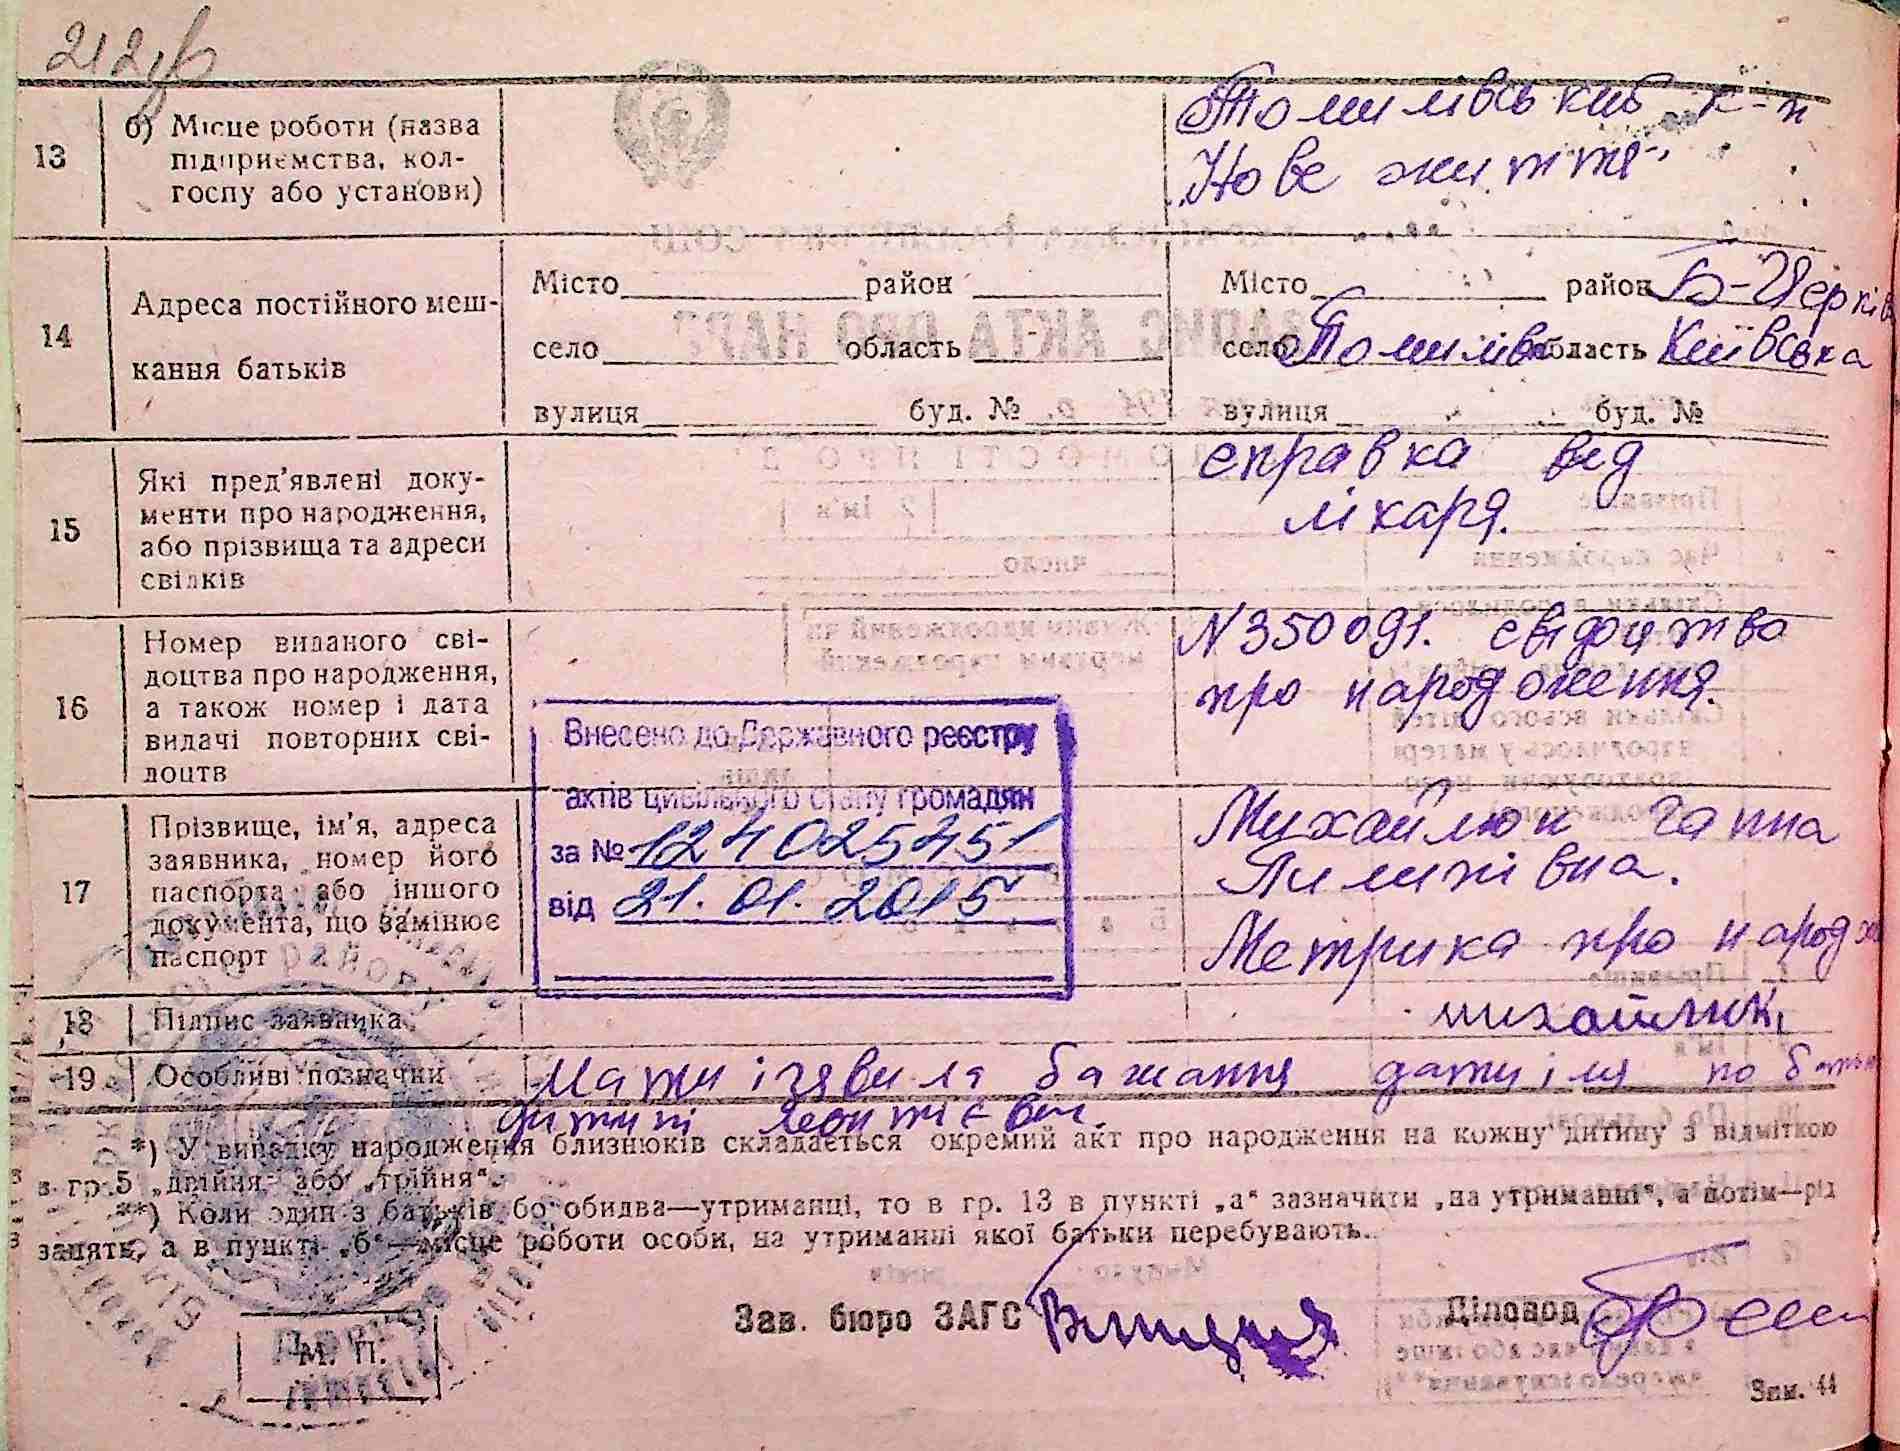 212
13
б) Місце роботи (назва
підприємства, кол-
госпу або установи)
Томилівський к-п
„Нове життя“
14
Адреса постійного меш-
кання батьків
Місто район
село область
вулиця буд. №
Місто район Б-Церків
село Томилівка область Київська
вулиця буд. №
15
Які пред'явлені доку-
менти про народження,
або прізвища та адреси
свідків
справка від
лікаря.
16
Номер виданого сві-
доцтва про народження,
а також номер і дата
видачі повторних сві-
доцтв
N 350091. свідоцтво
про народження.
Внесено до Державного реєстру
актів цивільного стану громадян
за № 124025451
від 21.01.2015
17
Прізвище, ім'я, адреса
заявника, номер його
паспорта або іншого
документа, що замінює
паспорт
Михайлюк Ганна
Пилипівна.
Метрика про народж
18
Підпис заявника
михайлюк
19
Особливі позначки
Мати ізявила бажання дати імя по батьк
дитині Леонтієвич.
*) У випадку народження близнюків складається окремий акт про народження на кожну дитину з відміткою
в гр. 5 „двійня“ або „трійня“.
**) Коли один з батьків бо обидва—утриманці, то в гр. 13 в пункті „а“ зазначити „на утриманні“, а потім—рід
занять, а в пункті „б“—місце роботи особи, на утриманні якої батьки перебувають.
М. П.
Зав. бюро ЗАГС
Діловод
Зам. 44